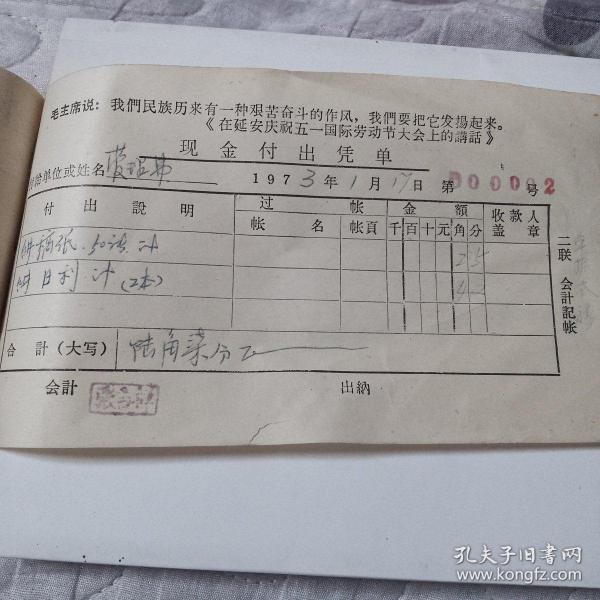 毛主席说：我們民族历来有一种艰苦奋斗的作风，我們要把它发揚起来。
《在延安庆祝五一国际劳动节大会上的講話》
现金付出凭单
单位或姓名
1973年1月17日 第000002号
付出說明 过帐 金額 收款人盖章
帐名 帐頁 千百十元角分
日刊 计（2本）
合計（大写） 陆角柒分
二联 会計記帐
会計 出納
孔夫子旧书网
www.kongfz.com